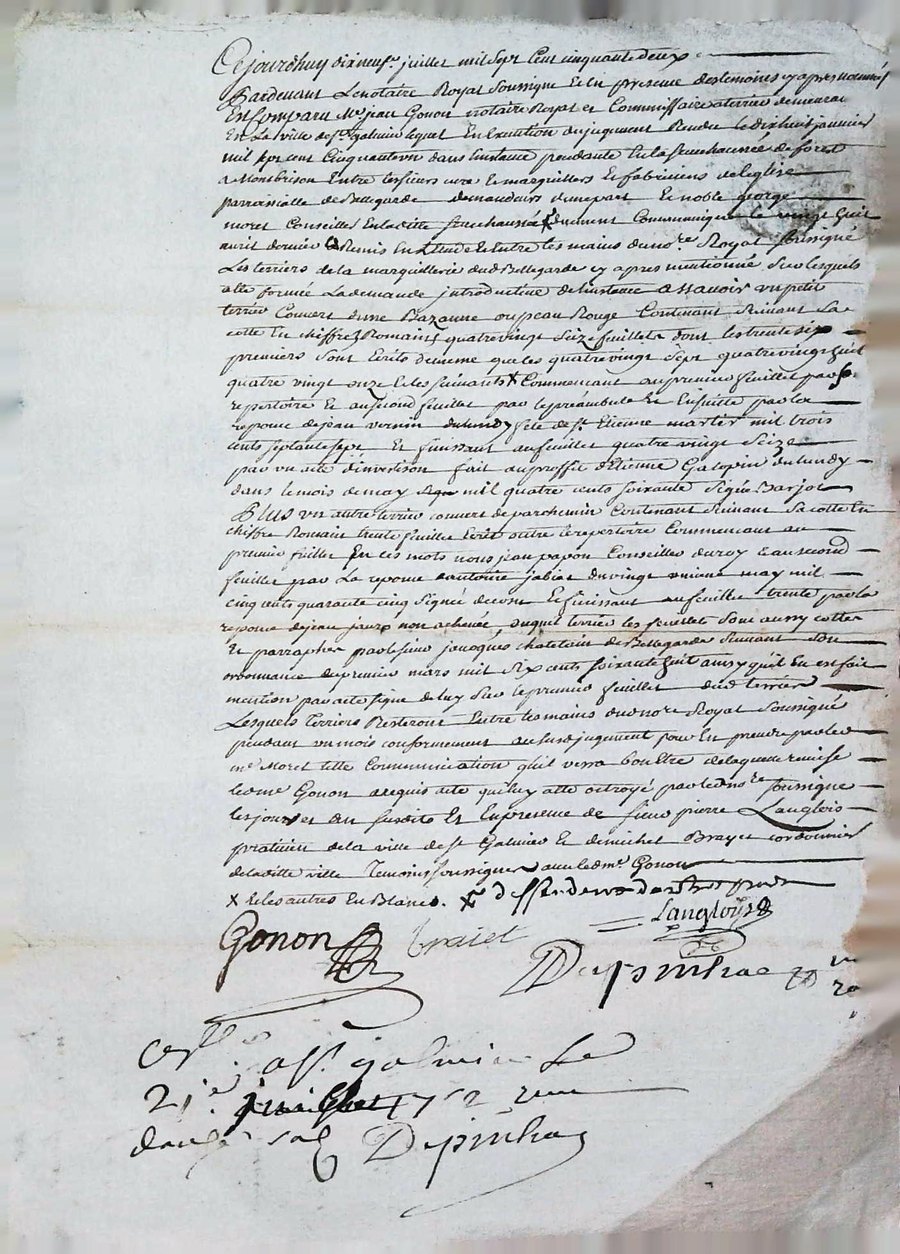 Cejourdhuy dixneufe. juillet mil sept cent cinquante deux
Pardevant Lenotaire Royal soussigné et en presence destemoins cy apres nommés
En comparu Me. jean Gonon notaire Royal et Commissaire aterrier demeurant
En La ville de st. galmier lequel En Execution du jugement Rendu le dixhuit janvier
mil sept cent Cinquante un dans linstance pendante En la senechaussée de forest
a Montbrison Entre les sieurs curé Et marguilliers Et fabriciens de leglise
parroissialle de Bellegarde demandeurs dune part Et noble george
moret Conseiller En laditte senechaussée X dument Communiqué le vingt huit
avril dernier a Remis En Letude et entre les mains du nore. Royal soussigné
Les terriers de la marguillerie dud Bellegarde cy apres mentionné sur lesquels
a été formée La demande introductive de linstance assavoir un petit
terrier Couvert dune Bazanne ou peau Rouge Contenant suivant La
cotte En chiffres Romains quatrevingt seize feuillets dont les trente six
premiers sont Ecrits de meme que les quatrevingt sept quatrevingt huit
quatre vingt onze Et les suivants X Commencant au premier feuillet par le
repertoire Et au second feuillet par le préambule Et Ensuite par la
reponce de jean vernin du lundy fete de st. Etienne martir mil trois
cents septante sept Et finissant au feuillet quatre vingt seize
par un acte dinvestison fait au proffit dEtienne Galopin du lundy
dans le mois de may mil quatre cents soixante signé Barjot
Plus un autre terrier couvert de parchemin Contenant suivant sa cotte En
chiffre Romain trente feuillets Ecrits outre le repertoire Commencant au
premier feuillet En ces mots nous jean papon Conseiller du roy Et au second
feuillet par La reponce dantoine jabier du vingt unieme may mil
cinq cents quarante cinq signée Et finissant au feuillet trente par la
reponce de jean non achevée, duquel terrier les feuillets sont aussy cottés
Et parraphés par le sieur jacques chatelain de Bellegarde suivant son
ordonnance du premier mars mil six cents soixante huit ainsy quil En est fait
mention par acte signé de luy sur le premier feuillet dud terrier
Lesquels terriers Resteront Entre les mains dud nore Royal soussigné
pendant un mois conformement au susd jugement pour En prendre par led
me Moret telle Communication quil verra bon Etre de laquelle remise
led me Gonon a requis acte qui luy a été octroyé par led nore soussigné
les jour et an susdits Et En presence de sieur pierre Langlois
praticien de la ville de st Galmier Et de michel Brayet cordonnier
de laditte ville Temoins soussignés avec led me. Gonon
X Et les autres En Blanc. X deffendeur dautre part
Gonon Braiet Langloys
Depinhac
Collé a st. galmier Le
21e. juillet 1752 reçu
douze sols Depinhac